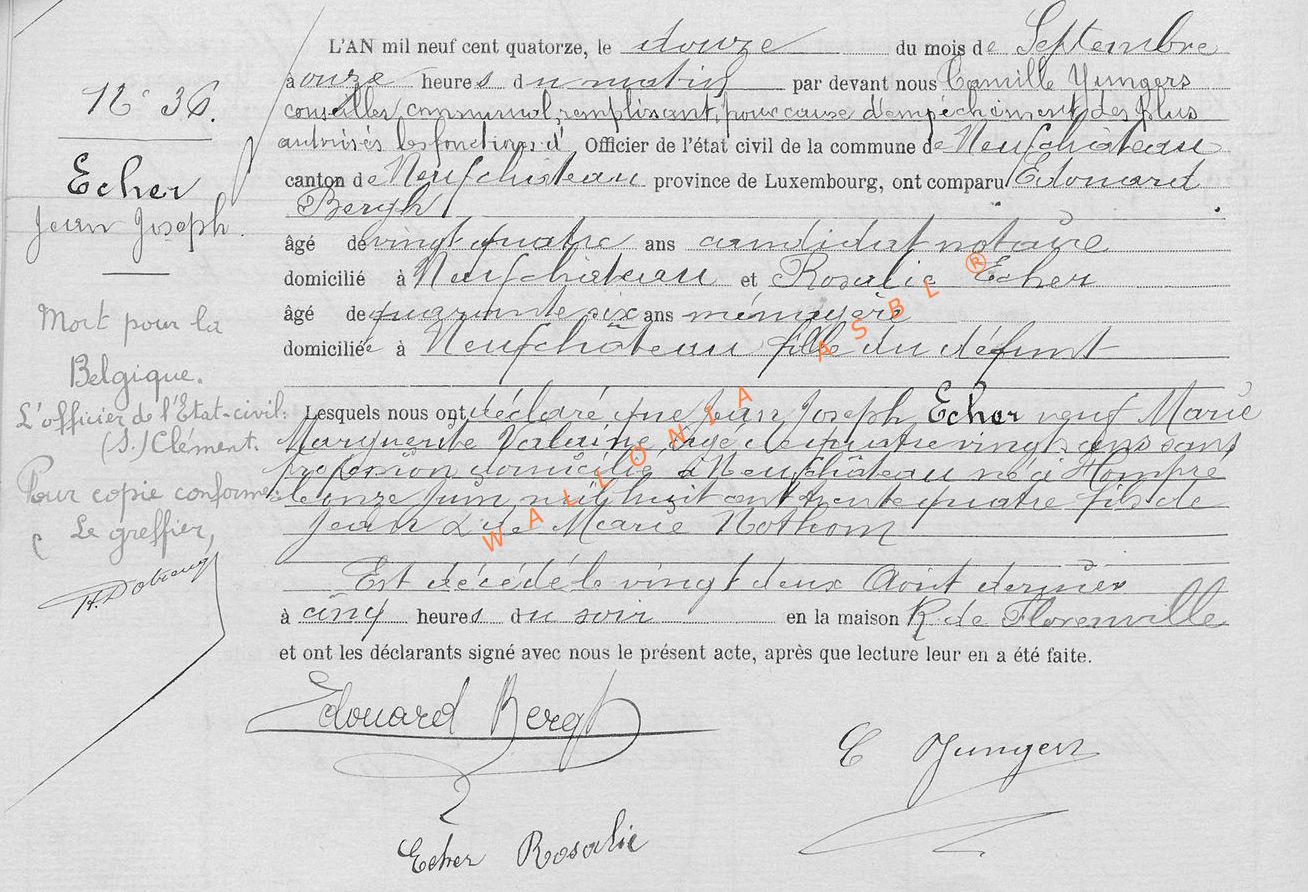 L'AN mil neuf cent quatorze, le douze du mois de Septembre
à onze heures du matin par devant nous Camille Yungers
conseiller communal remplissant, pour cause d'empêchement des plus
autorisés les fonctions d' Officier de l'état civil de la commune de Neufchâteau
canton de Neufchâteau province de Luxembourg, ont comparu Edouard
Bergh
âgé de vingt quatre ans candidat notaire
domicilié à Neufchâteau et Rosalie Echer
âgée de quarante six ans ménagère
domiciliée à Neufchâteau fille du défunt
Lesquels nous ont déclaré que Jean Joseph Echer veuf Marie
Marguerite âgé de quatre vingts ans sans
profession domicilié à Neufchâteau né à Hompré
le onze Juin mil huit cent trente quatre fils de
Jean & de Marie Nothom
Est décédé le vingt deux Août dernier
à cinq heures du soir en la maison R. de Florenville
et ont les déclarants signé avec nous le présent acte, après que lecture leur en a été faite.
Edouard Bergh
C Yungers
Echer Rosalie
N° 36.
Echer
Jean Joseph.
Mort pour la
Belgique.
L'officier de l'Etat-civil:
(S.) Clément.
Pour copie conforme:
Le greffier,
WALLONIA ASBL ®